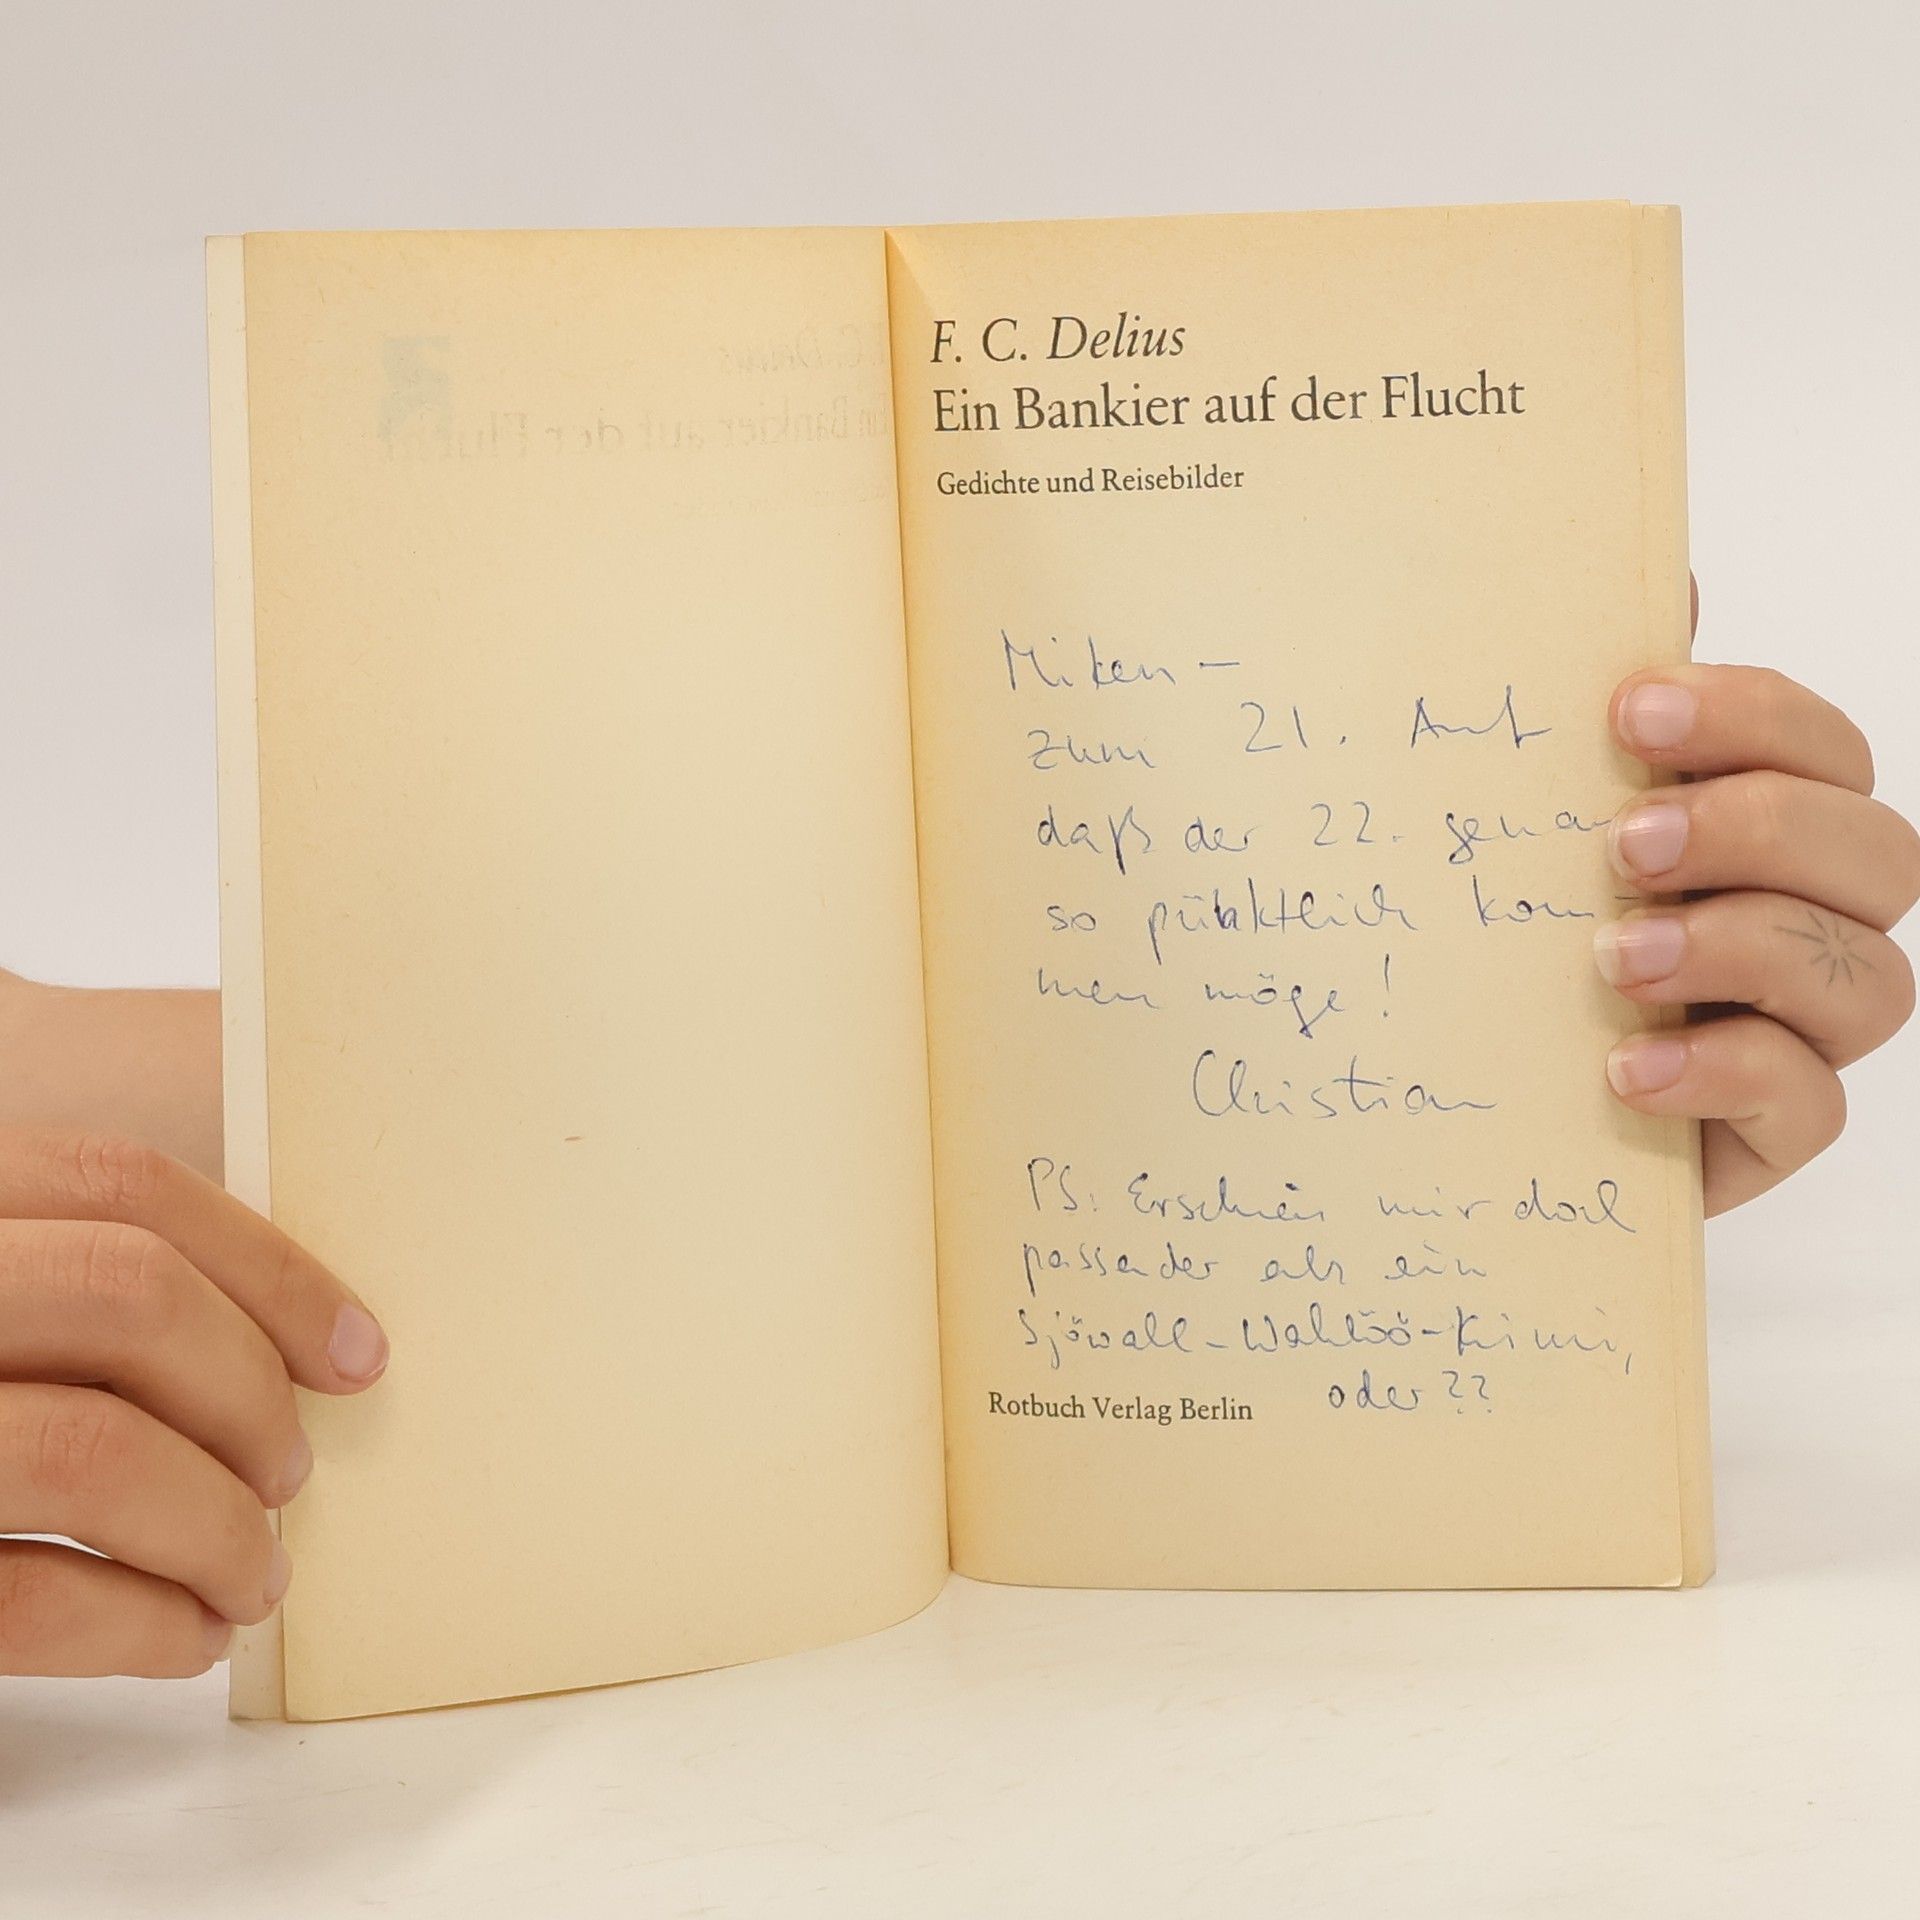 F. C. Delius
Ein Bankier auf der Flucht
Gedichte und Reisebilder
Miken –
zum 21. Auf
daß der 22. genau
so pünktlich kom-
men möge!
Christian
PS: Erschien mir doch
passender als ein
Sjöwall-Wahlöö-Krimi,
oder??
Rotbuch Verlag Berlin